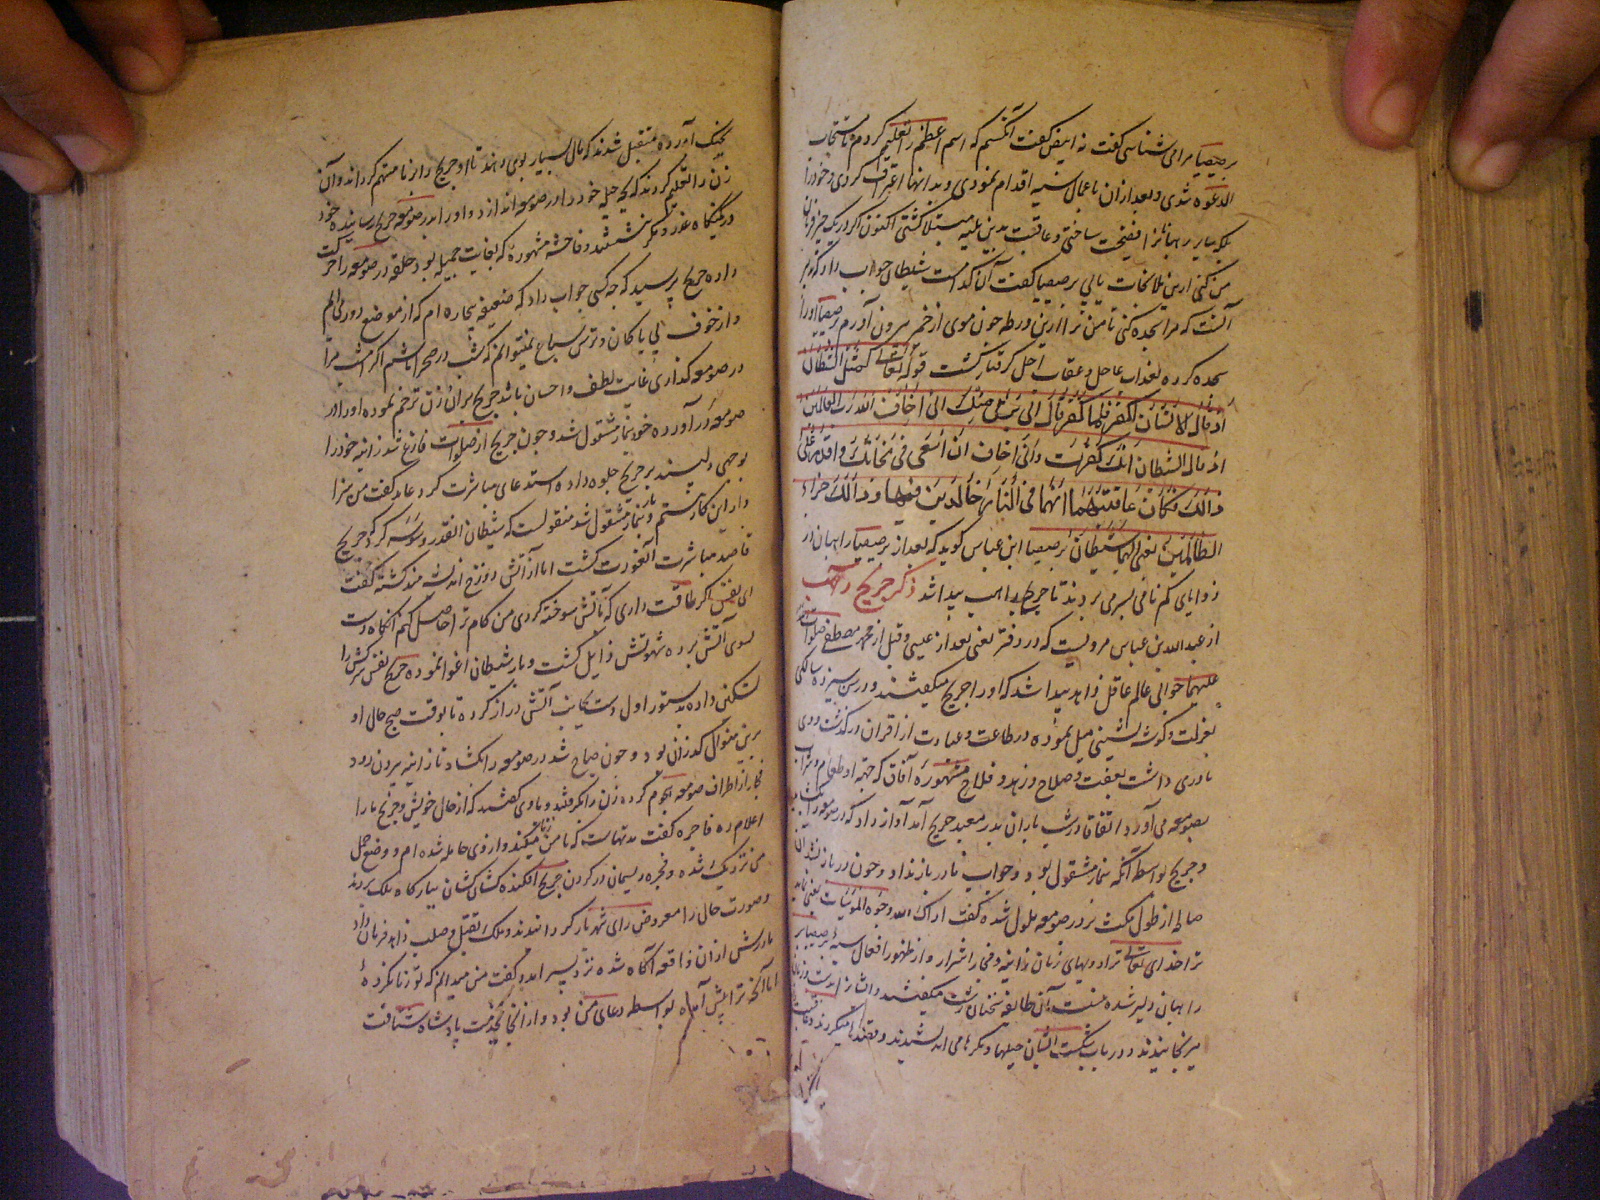 برصیصیا مرا می شناسی گفت نه ابلیس گفت آنکسم که اسم اعظم را تعلیم کردم تا مستجاب
الدعوه شدی و بعد از آن باعمال سیه اقدام نمودی و بدانها اعتراف کردی و خود را
فضیحت ساختی و عاقبت بدین بلیه مبتلا گشتی اکنون اگر در یک چیز فرمان
من کنی ازین بلا نجات یابی برصیصیا گفت آن کدام است شیطان جواب داد که
آنست که مرا سجده کنی تا من ترا ازین ورطه چون موی از خمیر بیرون آورم برصیصیا او را
سجده کرده بعذاب عاجل و عقاب اجل گرفتار گشت قوله تعالی کمثل الشیطان
اذ قال للانسان اکفر فلما کفر قال انی بری منک انی اخاف الله رب العالمین
اذ قال الشیطان انک کفرت وانی اخاف ان اسعی فی نجاتک
ذالک فکان عاقبتهما انهما فی النار خالدین فیها وذالک جزاء
الظالمین یعنی شیطان برصیصیا ابن عباس گوید که بعد از برصیصیا راهبان در
زوایای کم نامی بسر می بردند تا جریج راهب پیدا شد ذکر جریج راهب
از عبدالله بن عباس مرویست که در فترت یعنی بعد از عیسی و قبل از محمد مصطفی صلوات
علیهما جوانی عالم عاقل زاهد پیدا شد که او را جریج میگفتند و در سن سیزده سالگی
بعزلت و گوشه نشینی میل نموده در طاعت و عبادت از اقران درگذشت و وی
مادری داشت بعفت و صلاح و زهد و فلاح مشهوره آفاق که جهة او طعام و شراب
بصومعه می آورد اتفاقا در شب باران بدر معبد جریج آمد آواز داد که در صومعه
و جریج بواسطه آنکه بنماز مشغول بود و جواب مادر باز نداد و چون در باز نشد
صالحه از طول مکث بر در صومعه ملول شده گفت اراک الله وجوه المومسات یعنی
ترا خدای تعالی رویهای زنان زانیه و فجار اشرار و از ظهور افعال سیه برصیصیا بر
راهبان دلیر شده نسبت بآن طایفه سخنان زشت میگفتند
میرنجانیدند و در باب شکست ایشان حیلها و مکرها می اندیشیدند
بجنگ آورده متقبل شدند که مال بسیار بوی دهند تا او جریج را بزنا متهم گرداند و آن
زن را تعلیم کردند که بچه حیله خود را در صومعه اندازد و او را بدر صومعه جریج رسانیده خود
در کمینگاه غدر و مکر بنشستند و فاحشه مشهوره که بغایت جمیله بود حلقه در صومعه را حرکت
داده جریج پرسید که چه کسی جواب داد که ضعیفه بیچاره ام که از موضع دور می آیم
و از خوف بی باکان و ترس سباع نمیتوانم که شب در صحرا باشم اگر امشب مرا
در صومعه گذاری غایت لطف و احسان باشد جریج بر آن زن ترحم نموده او را در
صومعه در آورده خود بنماز مشغول شد و چون جریج از صلوات فارغ شد زانیه خود را
بوجهی دلپسند بر جریج جلوه داده استدعای مباشرت کرد عابد گفت من سزا
وار این کار نیستم و باز بنماز مشغول شد منقولست که شیطان آنقدر وسوسه کرد که جریج
قاصد مباشرت آن عورت گشت اما از آتش دوزخ اندیشه مند گشته گفت
ای نفس اگر طاقت داری که بآتش سوخته گردی من کام ترا حاصل کنم آنکاه دست
بسوی آتش برده شهوتش زایل گشت و باز شیطان اغوا نموده جریج نفس سرکش را
تسکین داده بدستور اول دست بجانب آتش دراز کرده تا بوقت صبح حال او
برین منوال گذران بود و چون صباح شد در صومعه را بگشاد تا زانیه بیرون رود
فجار از اطراف صومعه هجوم کرده زن را بگرفتند و با وی گفتند که از حال خویش و جریج ما را
اعلام ده فاجره گفت مدتهاست که با من زنا میکند و از وی حامله شده ام و وضع حمل
من نزدیک شده و فجره ریسمان در گردن جریج افکنده کشان کشان ببارگاه ملک بردند
و صورت حال را معروض رای شهریار گردانیدند و ملک بقتل و صلب زاهد فرمان داد
مادرش از آن واقعه آگاه شده نزد پسر آمد و گفت من میدانم که تو زنا نکرده
اما آنچه ترا پیش آمد بواسطه دعای من بود و از آنجا بخدمت پادشاه شتافت